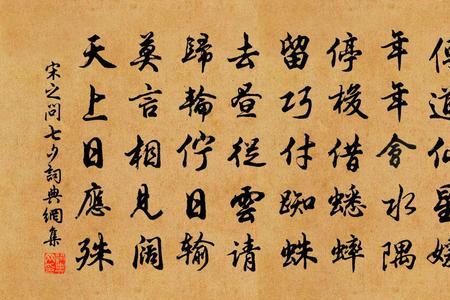 傳道仙星媛
年年會水隅
停梭借蟋蟀
留巧付蜘蛛
去晝從雲請
歸輪佇日輸
莫言相見闊
天上日應殊
宋之問七夕詞典網集